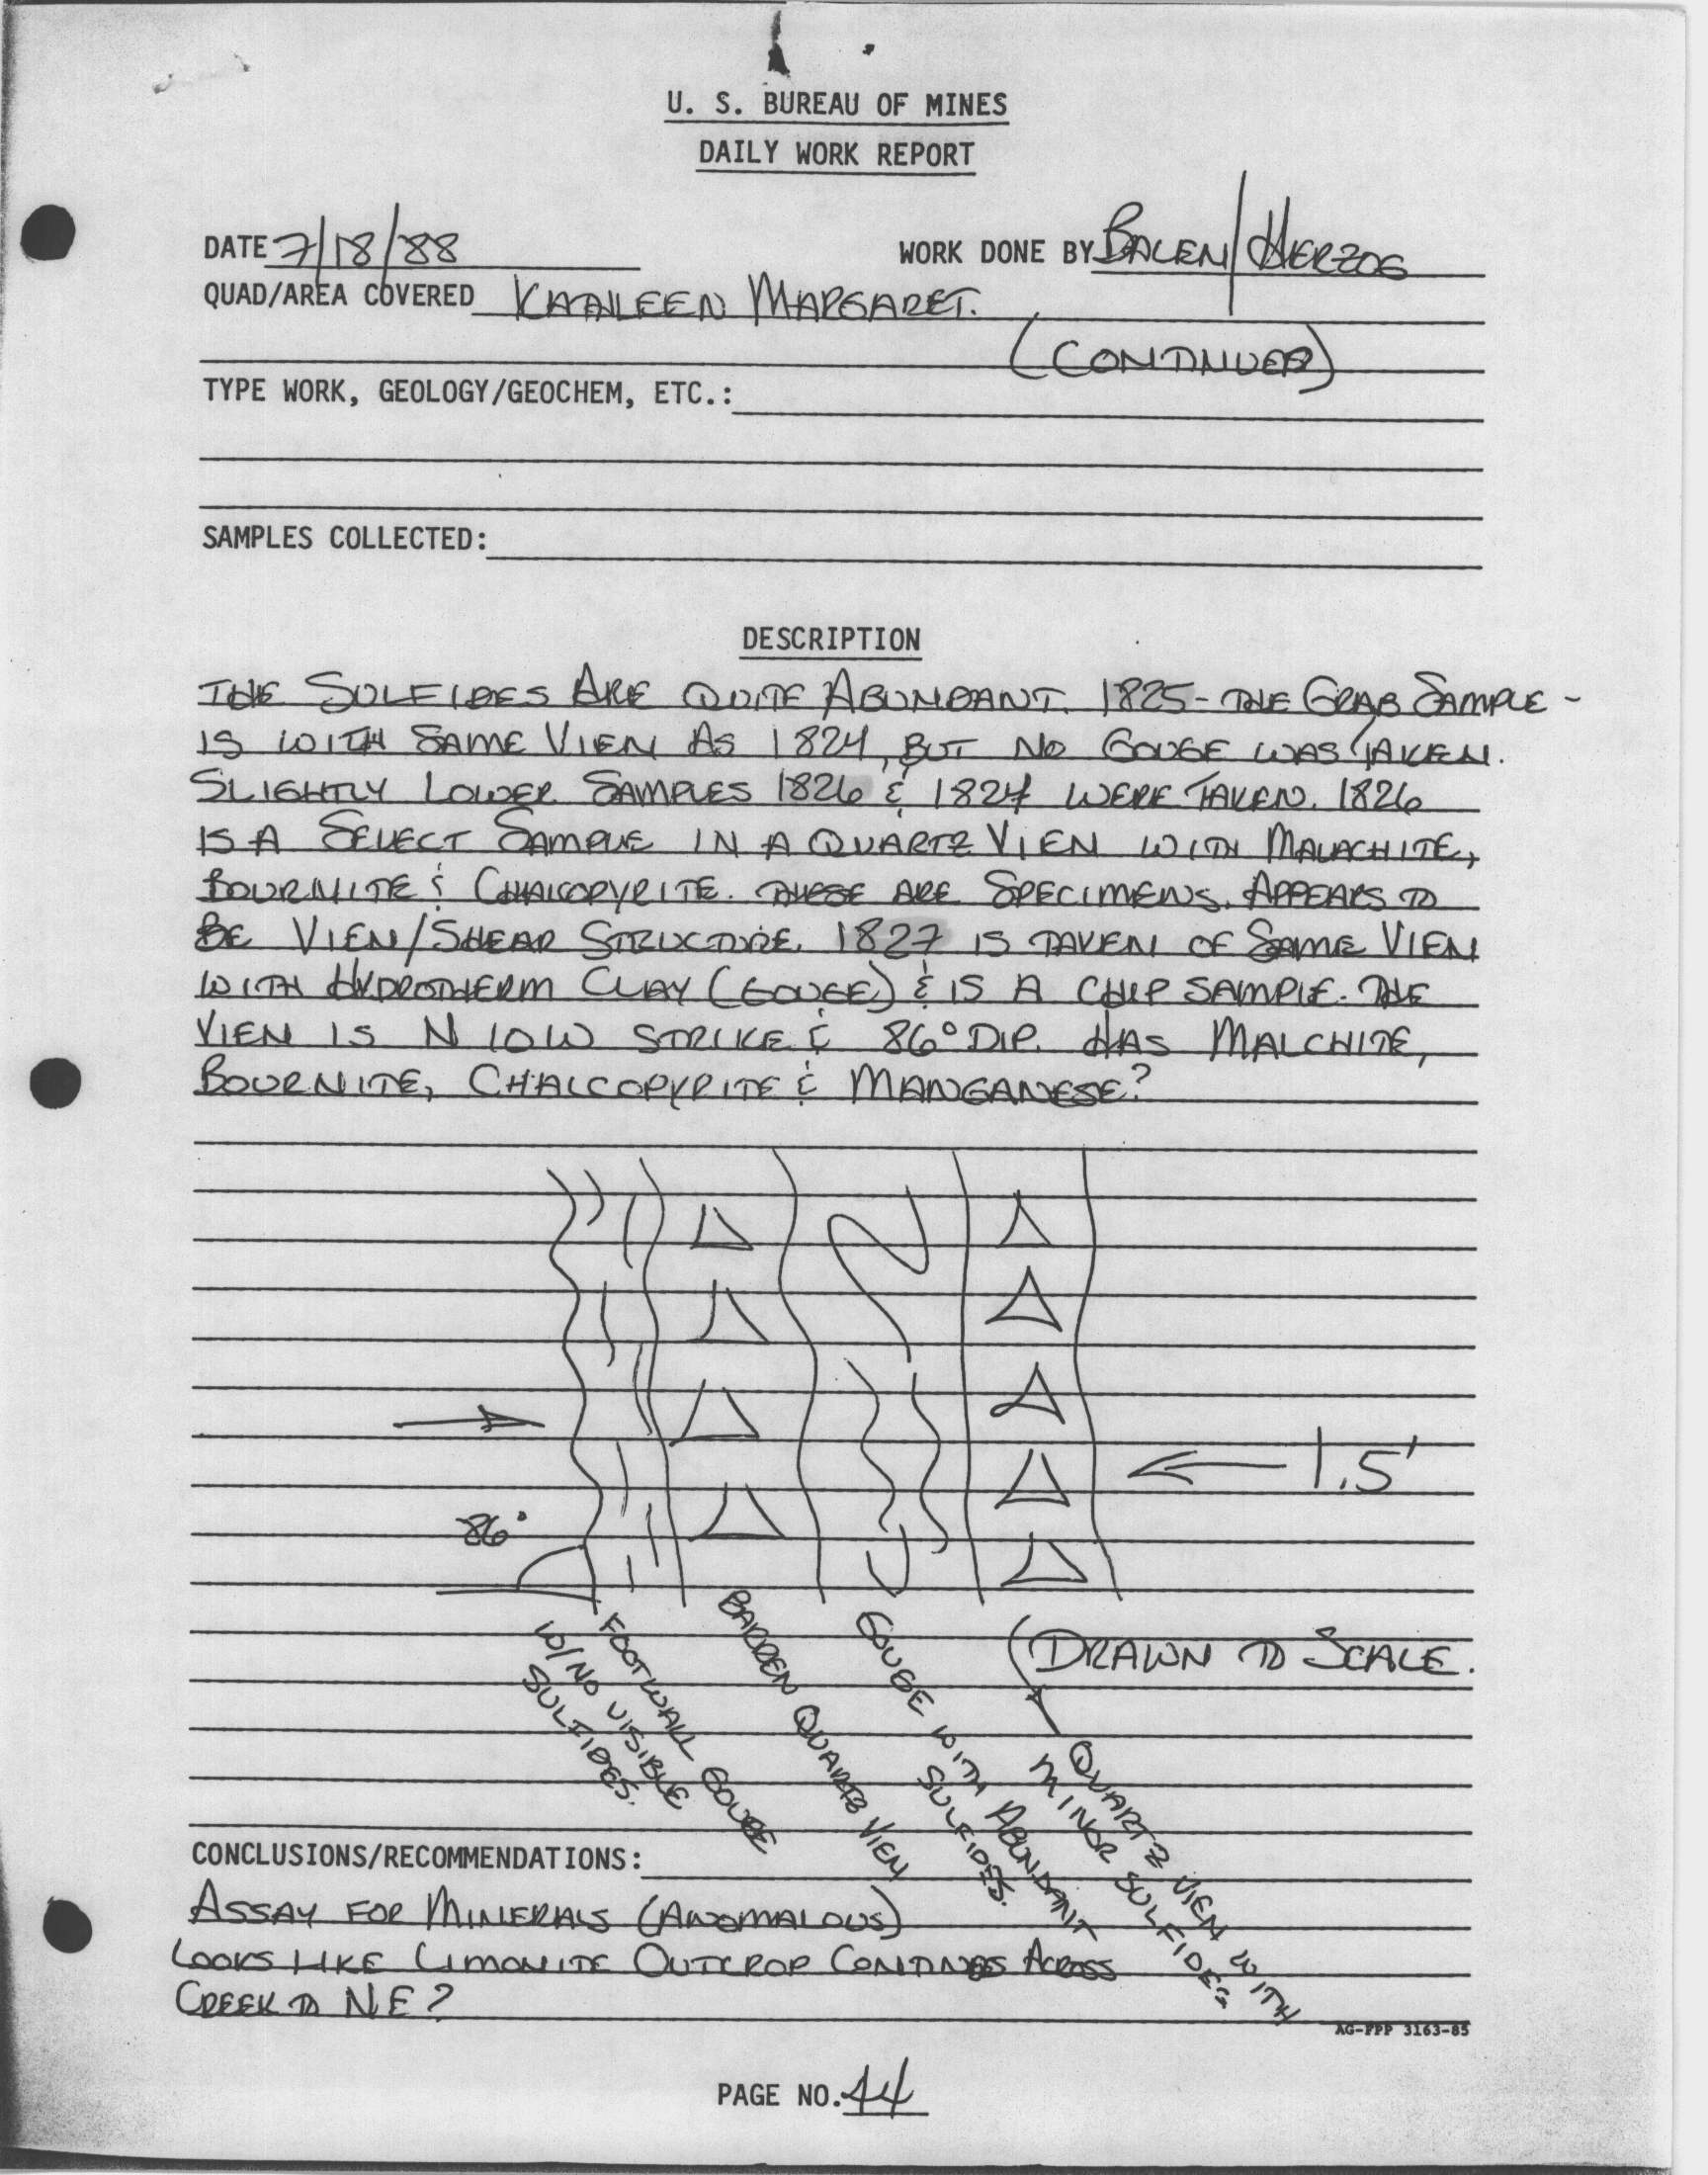 U. S. BUREAU OF MINES
DAILY WORK REPORT
DATE 7/18/88 WORK DONE BY BALEN/HERZOG
QUAD/AREA COVERED KATHLEEN MARGARET.
(CONTINUED)
TYPE WORK, GEOLOGY/GEOCHEM, ETC.:
SAMPLES COLLECTED:
DESCRIPTION
THE SULFIDES ARE QUITE ABUNDANT. 1825 - THE GRAB SAMPLE -
IS WITH SAME VIEN AS 1824, BUT NO GOUGE WAS TAKEN.
SLIGHTLY LOWER SAMPLES 1826 & 1827 WERE TAKEN. 1826
IS A SELECT SAMPLE IN A QUARTZ VIEN WITH MALACHITE,
BOURNITE & CHALCOPYRITE. THESE ARE SPECIMENS. APPEARS TO
BE VIEN/SHEAR STRUCTURE. 1827 IS TAKEN OF SAME VIEN
WITH HYDROTHERM CLAY (GOUGE) & IS A CHIP SAMPLE. THE
VIEN IS N 10 W STRIKE & 86° DIP. HAS MALCHITE,
BOURNITE, CHALCOPYRITE & MANGANESE?
1.5'
86°
FOOTWALL GOUGE
W/NO VISIBLE
SULFIDES.
BARREN QUARTZ VIEN
GOUGE WITH ABUNDANT
SULFIDES.
(DRAWN TO SCALE.
QUARTZ VIEN WITH
MINOR SULFIDES
CONCLUSIONS/RECOMMENDATIONS:
ASSAY FOR MINERALS (ANOMALOUS)
LOOKS LIKE LIMONITE OUTCROP CONTINUES ACROSS
CREEK TO NE?
AG-FPP 3163-85
PAGE NO. 44